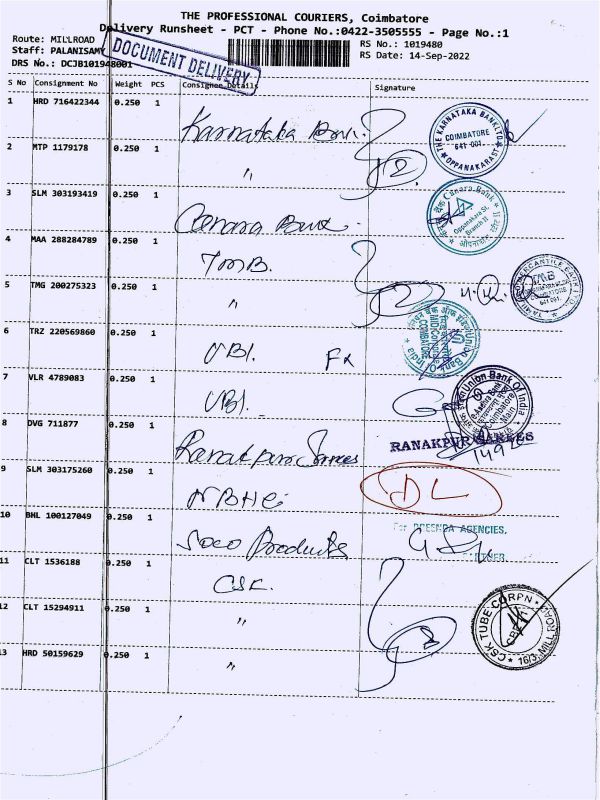 THE PROFESSIONAL COURIERS, Coimbatore
Delivery Runsheet - PCT - Phone No.:0422-3505555 - Page No.:1
Route: MILLROAD
RS No.: 1019480
Staff: PALANISAMY
RS Date: 14-Sep-2022
DRS No.: DCJB101948001
DOCUMENT DELIVERY
S No Consignment No Weight PCS Consignee Details Signature
1 HRD 716422344 0.250 1 Karnataka Bank.
THE KARNATAKA BANK LTD COIMBATORE 641 001. OPPANAKARAST
2 MTP 1179178 0.250 1 "
2
3 SLM 303193419 0.250 1 Canara Bank
Canara Bank Oppanakara St. Branch II
4 MAA 288284789 0.250 1 TMB.
5 TMG 200275323 0.250 1 "
2
TMB COIMBATORE 641 001.
6 TRZ 220569860 0.250 1 UBI. Fx
Union Bank Of India COIMBATORE
7 VLR 4789083 0.250 1 UBI.
Union Bank Of India Coimbatore Main
8 DVG 711877 0.250 1 Ranakpur Sarees
RANAKPUR SAREES
9 SLM 303175260 0.250 1 NBHC
DL
10 BHL 100127049 0.250 1 Soco Products
For AGENCIES,
PARTNER
11 CLT 1536188 0.250 1 CSK.
12 CLT 15294911 0.250 1 "
3
CSK TUBE CORPN CBE-1 16/3, MILL ROAD
13 HRD 50159629 0.250 1 "